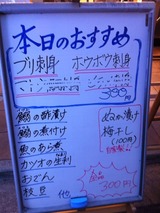 本日のおすすめ
ブリ刺身 ホウボウ刺身
399円
鰯の酢漬け
鰯の煮付け
魚のあら煮
カツオの生利
おでん
枝豆
他
ぬか漬け
梅干し
(100円)
全品
300円